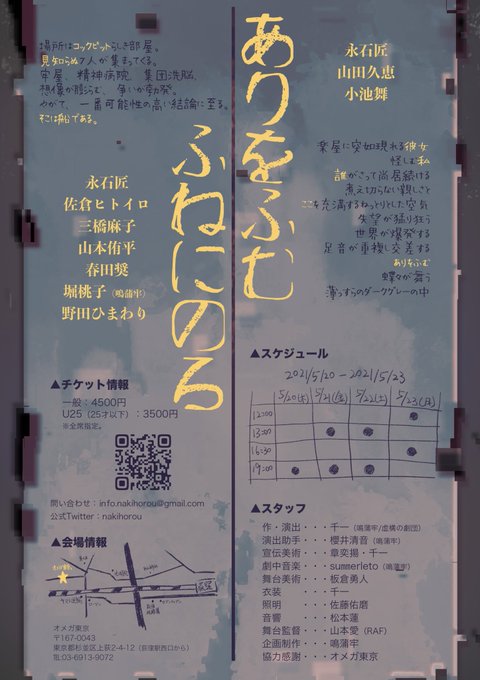 ありをふむ
ふねにのる
場所はコックピットらしき部屋。
見知らぬ7人が集まってくる。
牢屋、精神病院、集団洗脳、
想像が膨らむ、争いが勃発。
やがて、一番可能性の高い結論に至る。
そこは船である。
永石匠
佐倉ヒトイロ
三橋麻子
山本侑平
春田奨
堀桃子（鳴蒲牢）
野田ひまわり
永石匠
山田久恵
小池舞
楽屋に突如現れる彼女
怪しむ私
誰がさって尚居続ける
煮え切らない親しさと
ここを充満するねっとりとした空気
失望が猛り狂う
世界が爆発する
足音が重複し交差する
ありをふむ
蝶々が舞う
薄っすらのダークグレーの中
▲チケット情報
一般：4500円
U25（25才以下）：3500円
※全席指定。
問い合わせ：info.nakihorou@gmail.com
公式Twitter：nakihorou
▲会場情報
荻窪
オメガ東京
〒167-0043
東京都杉並区上荻2-4-12（荻窪駅西口から）
TEL:03-6913-9072
▲スケジュール
2021/5/20－2021/5/23
5/20(木) 5/21(金) 5/22(土) 5/23(日)
12:00 ●
13:00 ● ●
16:30 ●
19:00 ● ● ●
▲スタッフ
作・演出・・・千一（鳴蒲牢/虚構の劇団）
演出助手・・・櫻井清音（鳴蒲牢）
宣伝美術・・・章奕揚・千一
劇中音楽・・・summerleto（鳴蒲牢）
舞台美術・・・板倉勇人
衣装　　・・・千一
照明　　・・・佐藤佑磨
音響　　・・・松本蓮
舞台監督・・・山本愛（RAF）
企画制作・・・鳴蒲牢
協力感謝・・・オメガ東京